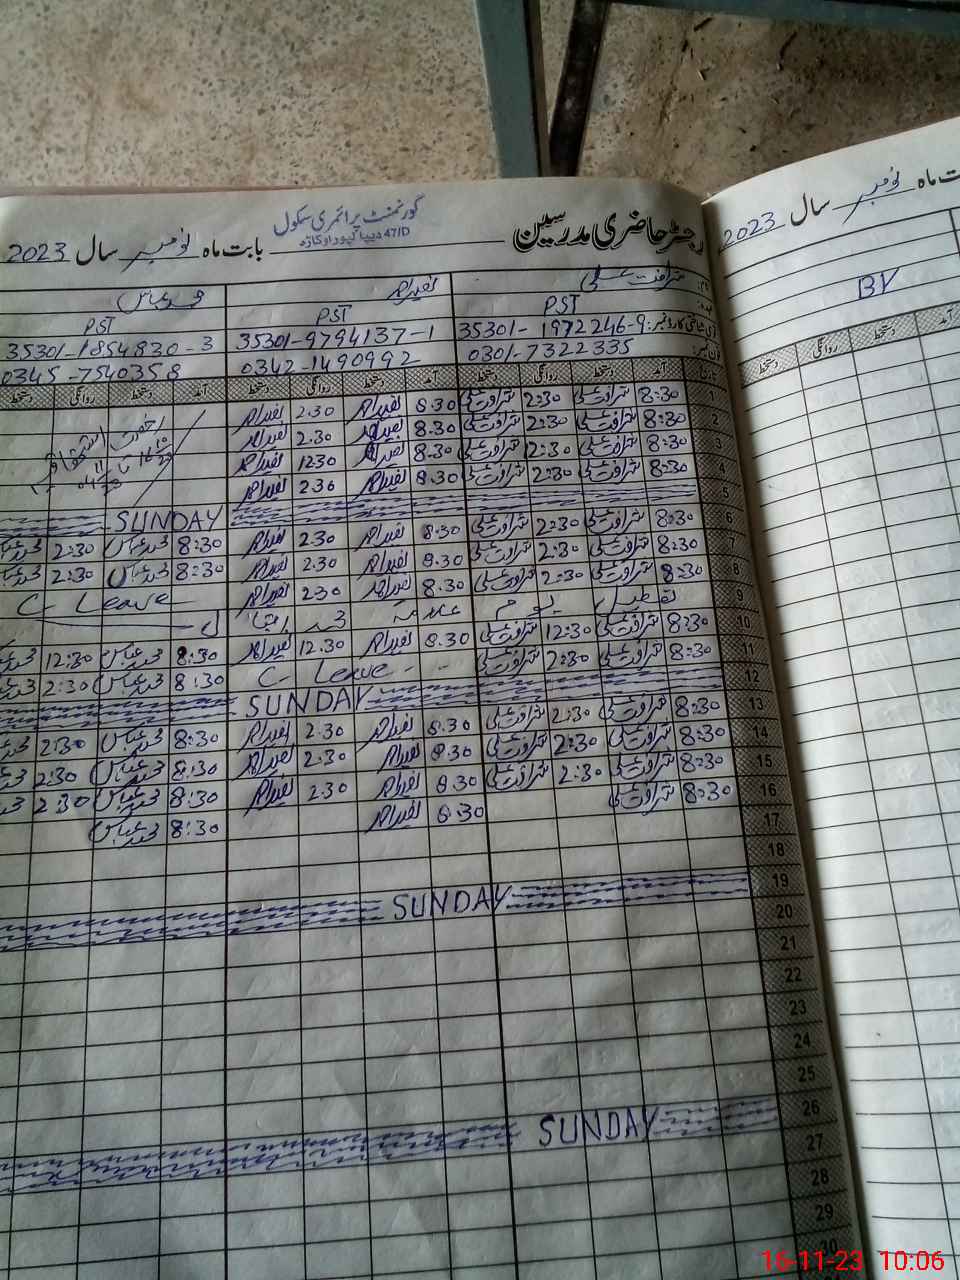 گورنمنٹ پرائمری سکول
47/D دیپالپور اوکاڑہ
رجسٹر حاضری مدرسین بابت ماہ نومبر سال 2023
شرافت علی نصیر احمد محمد عباس
PST PST PST
35301-1972246-9 قومی شناختی کارڈ نمبر: 35301-9794137-1 35301-1854830-3
0301-7322335 فون نمبر: 0342-1490992 0345-7540358
آمد دستخط روانگی دستخط آمد دستخط روانگی دستخط آمد دستخط روانگی دستخط
1 8:30 شرافت علی 2:30 شرافت علی 8.30 نصیر احمد 2.30 نصیر احمد رخصت
2 8:30 شرافت علی 2:30 شرافت علی 8.30 نصیر احمد 2.30 نصیر احمد
3 8:30 شرافت علی 12:30 شرافت علی 8.30 نصیر احمد 12.30 نصیر احمد
4 8:30 شرافت علی 2:30 شرافت علی 8.30 نصیر احمد 2.30 نصیر احمد
5 SUNDAY
6 8:30 شرافت علی 2:30 شرافت علی 8.30 نصیر احمد 2.30 نصیر احمد 8:30 محمد عباس 2:30 محمد عباس
7 8:30 شرافت علی 2:30 شرافت علی 8.30 نصیر احمد 2.30 نصیر احمد 8:30 محمد عباس 2:30 محمد عباس
8 8:30 شرافت علی 2:30 شرافت علی 8.30 نصیر احمد 2.30 نصیر احمد C Leave
9 تعطیل یوم علامہ محمد اقبال
10 8:30 شرافت علی 12:30 شرافت علی 8.30 نصیر احمد 12.30 نصیر احمد 8:30 محمد عباس 12:30 محمد عباس
11 8:30 شرافت علی 2:30 شرافت علی C Leave 8:30 محمد عباس 2:30 محمد عباس
12 SUNDAY
13 8:30 شرافت علی 2:30 شرافت علی 8.30 نصیر احمد 2.30 نصیر احمد 8:30 محمد عباس 2:30 محمد عباس
14 8:30 شرافت علی 2:30 شرافت علی 8.30 نصیر احمد 2.30 نصیر احمد 8:30 محمد عباس 2:30 محمد عباس
15 8:30 شرافت علی 2:30 شرافت علی 8.30 نصیر احمد 2.30 نصیر احمد 8:30 محمد عباس 2:30 محمد عباس
16 8:30 شرافت علی 8.30 نصیر احمد 8:30 محمد عباس
17
18
19 SUNDAY
20
21
22
23
24
25
26 SUNDAY
27
28
29
30
بابت ماہ نومبر سال 2023
BV
آمد دستخط روانگی دستخط
16-11-23 10:06